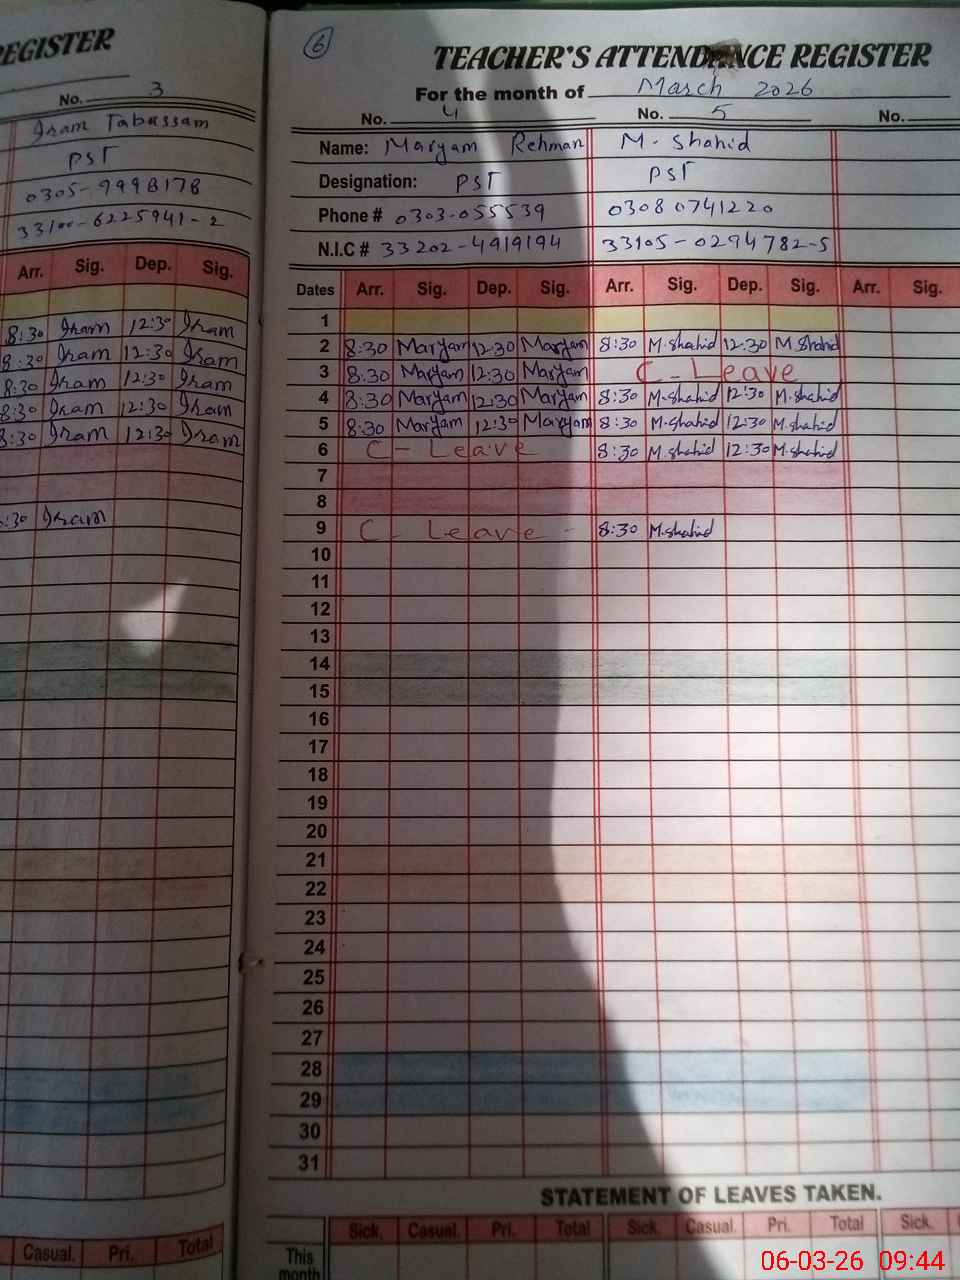 REGISTER
No. 3
Iram Tabassam
PST
0305-9998178
33100-6225941-2
Arr. Sig. Dep. Sig.
8:30 Iram 12:30 Iram
8:30 Iram 12:30 Iram
8:30 Iram 12:30 Iram
8:30 Iram 12:30 Iram
8:30 Iram 12:30 Iram
:30 Iram
Casual. Pri. Total
6
TEACHER'S ATTENDANCE REGISTER
For the month of March 2026
No. 4 No. 5 No.
Name: Maryam Rehman M. Shahid
Designation: PST PST
Phone # 0303-055539 03080741220
N.I.C # 33202-4919194 33105-0294782-5
Dates Arr. Sig. Dep. Sig. Arr. Sig. Dep. Sig. Arr. Sig.
1
2 8:30 Maryam 12:30 Maryam 8:30 M.shahid 12:30 M.Shahid
3 8:30 Maryam 12:30 Maryam C-Leave
4 8:30 Maryam 12:30 Maryam 8:30 M.shahid 12:30 M.shahid
5 8:30 Maryam 12:30 Maryam 8:30 M.shahid 12:30 M.shahid
6 C-Leave 8:30 M.shahid 12:30 M.shahid
7
8
9 C-Leave- 8:30 M.shahid
10
11
12
13
14
15
16
17
18
19
20
21
22
23
24
25
26
27
28
29
30
31
STATEMENT OF LEAVES TAKEN.
Sick. Casual. Pri. Total Sick. Casual. Pri. Total Sick.
This month
06-03-26 09:44